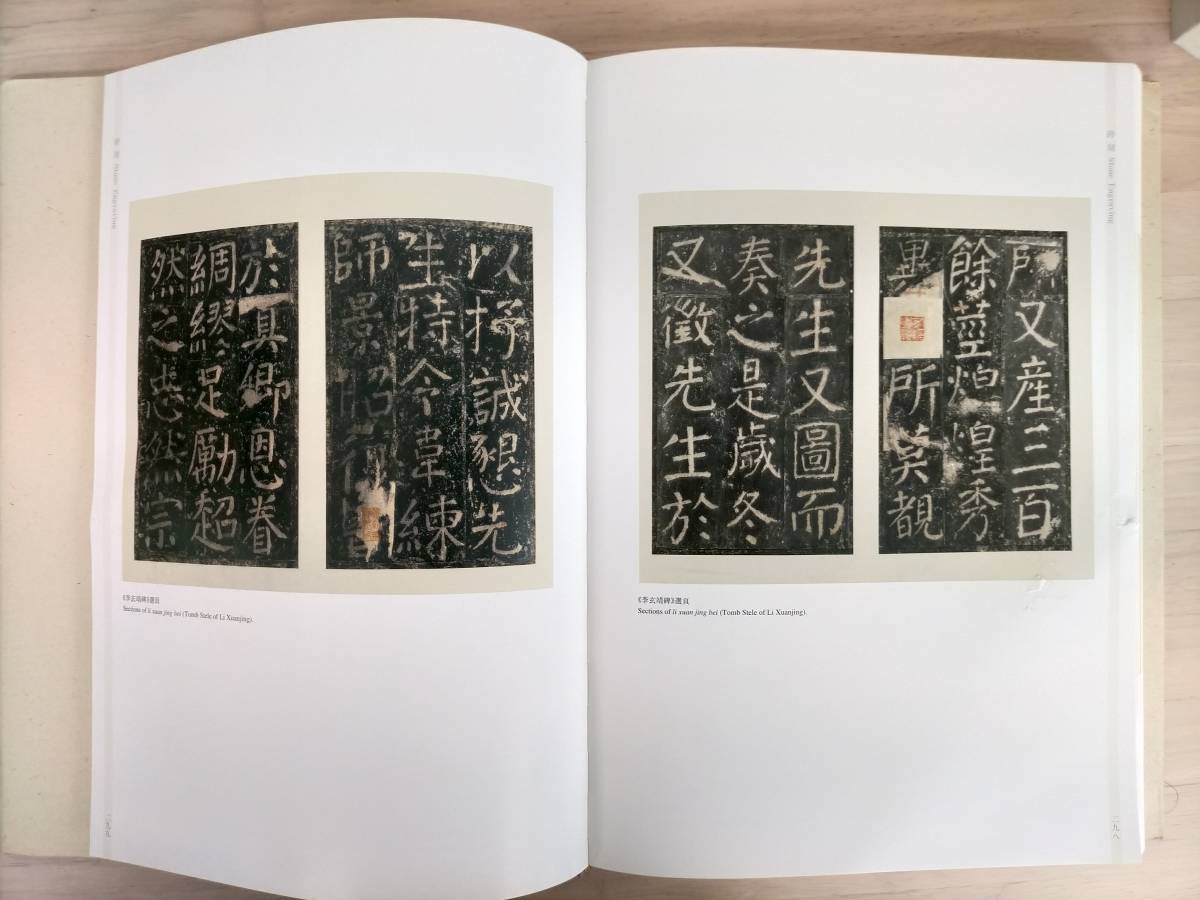 碑刻 Stone Engraving
又産三百
餘莖煌秀
異所莫覩
先生又圖而
奏之是歲冬
又徵先生於
《李玄靖碑》選頁
Sections of li xuan jing bei (Tomb Stele of Li Xuanjing).
二九八
碑刻 Stone Engraving
以抒誠懇先
生特令韋練
師景昭復
於真卿恩眷
綢繆足勵超
然之志然宗
《李玄靖碑》選頁
Sections of li xuan jing bei (Tomb Stele of Li Xuanjing).
二九九